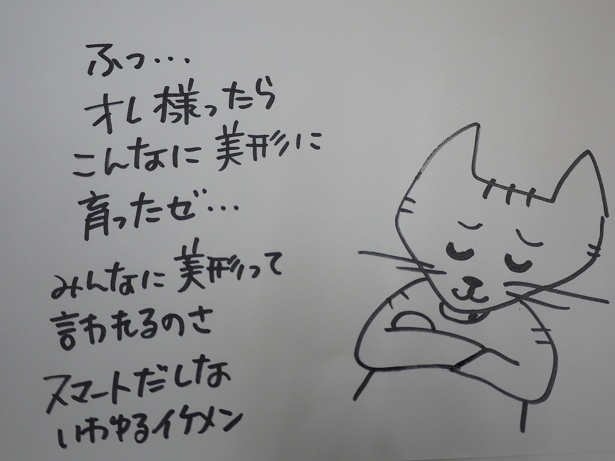 ふっ・・・
オレ様ったら
こんなに美形に
育ったゼ・・・
みんなに美形って
言われるのさ
スマートだしな
いわゆるイケメン